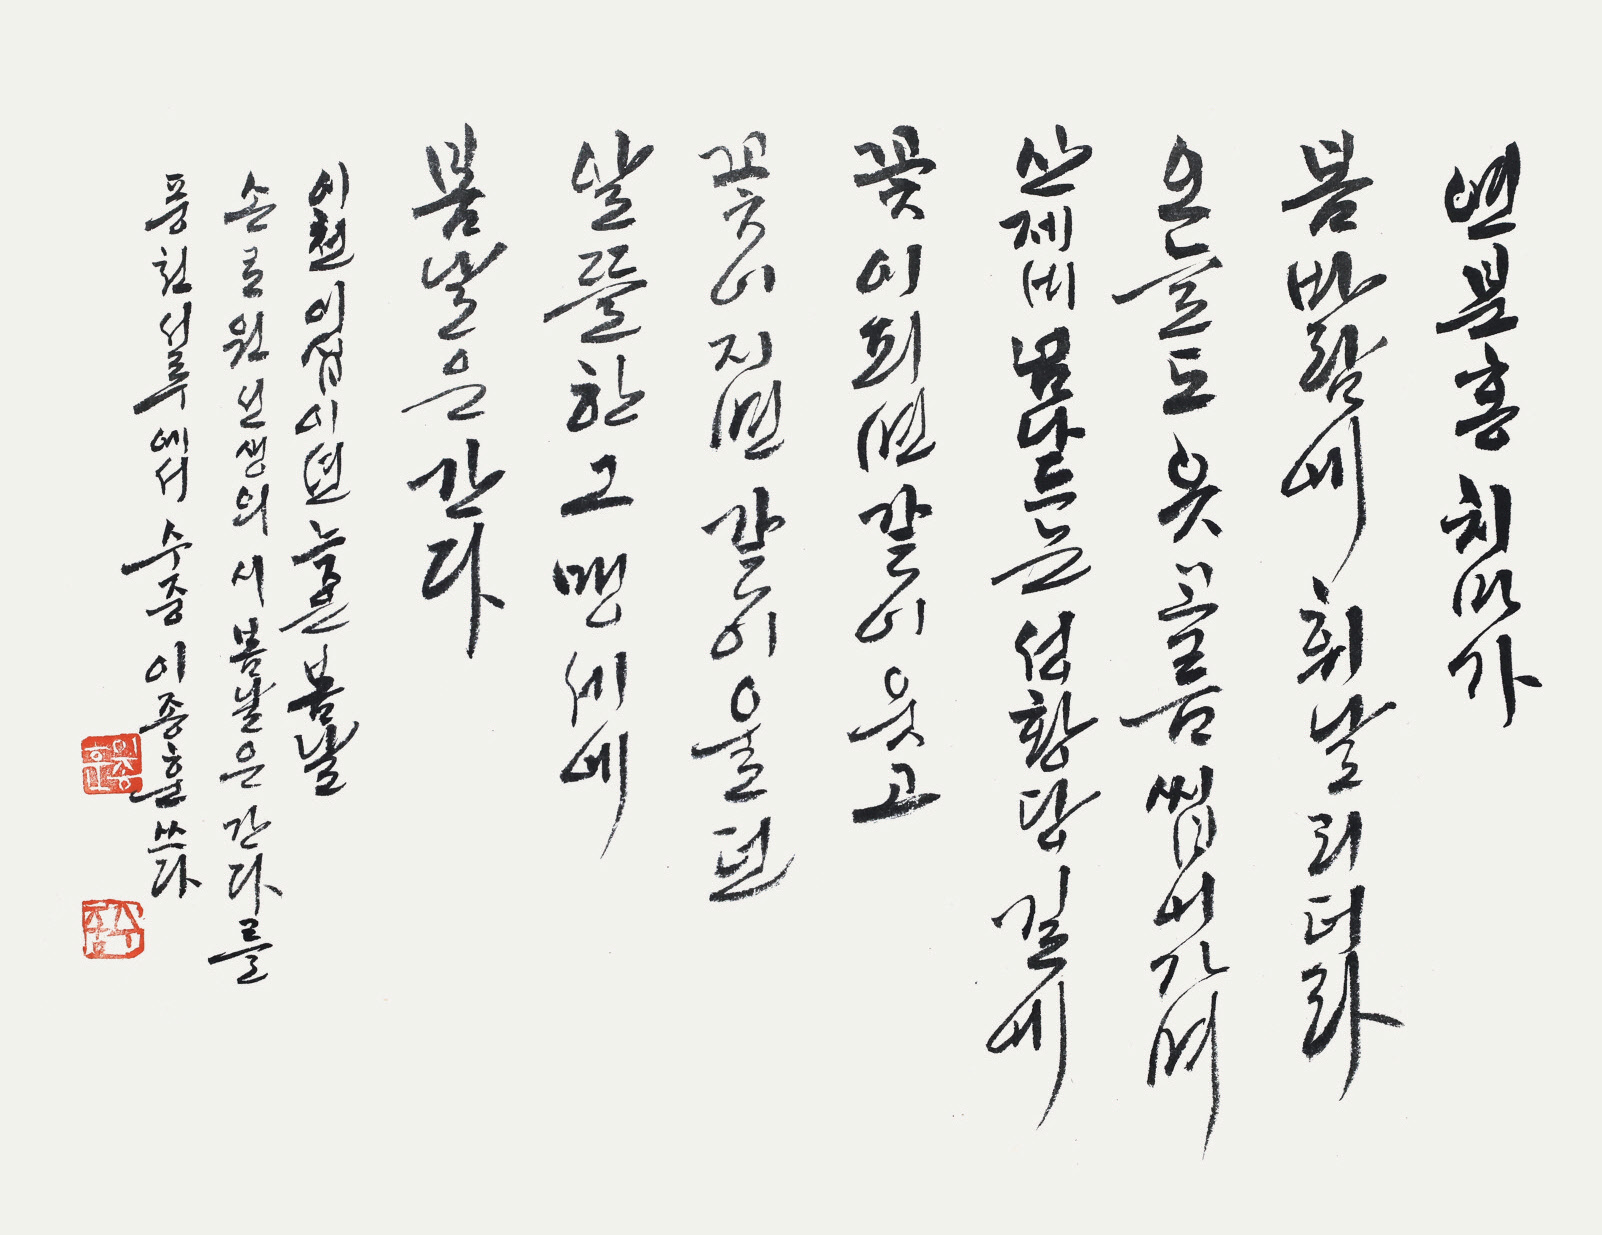 연분홍 치마가
봄바람에 휘날리더라
오늘도 옷고름 씹어가며
산제비 넘나드는 성황당 길에
꽃이 피면 같이 웃고
꽃이 지면 같이 울던
알뜰한 그 맹세에
봄날은 간다
이천이십이년 늦은 봄날
손로원 선생의 시 봄날은 간다를
풍천서루에서 수중 이종훈 쓰다
이종훈
수중